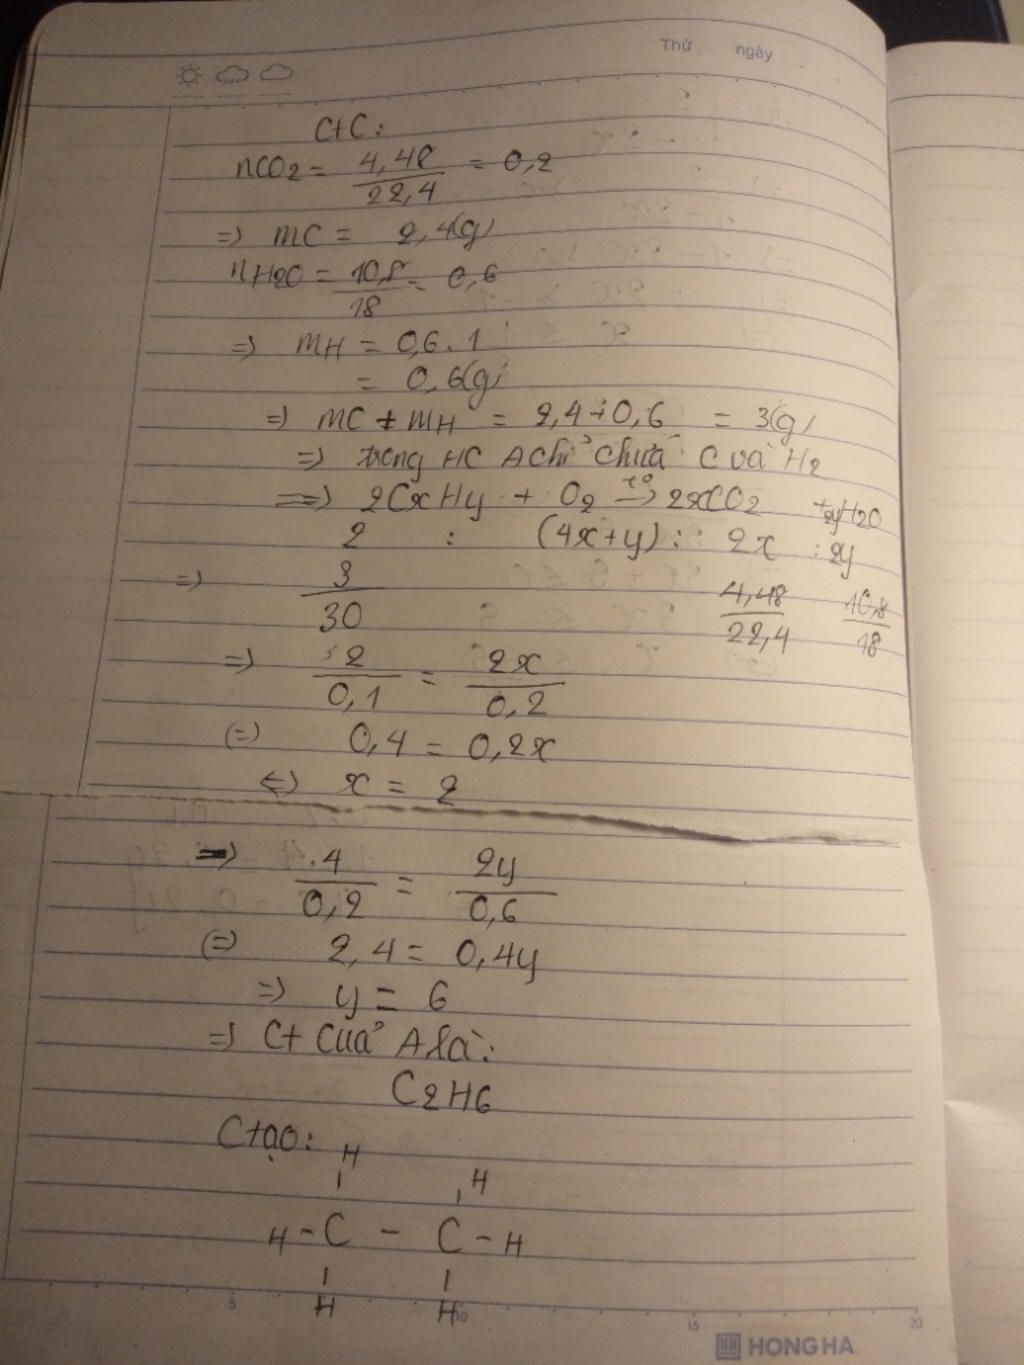 Thứ ngày
C+C:
nCO2 = 4,48/22,4 = 0,2
=) mC = 2,4(g)
nH2O = 10,8/18 = 0,6
=) mH = 0,6.1
= 0,6(g)
=) mC + mH = 2,4+0,6 = 3(g)
=) trong HC A chỉ chứa C và H2
=) 2CxHy + O2 t° → 2xCO2 + 2yH2O
2 : (4x+y) : 2x : 2y
=) 3/30 4,48/22,4 10,8/18
=) 2/0,1 = 2x/0,2
(=) 0,4 = 0,2x
(=) x = 2
=) 4/0,2 = 2y/0,6
(=) 2,4 = 0,4y
=) y = 6
=) C+ của A là:
C2H6
C tạo:
H H
H - C - C - H
H H
5 10 15 20
HONG HA